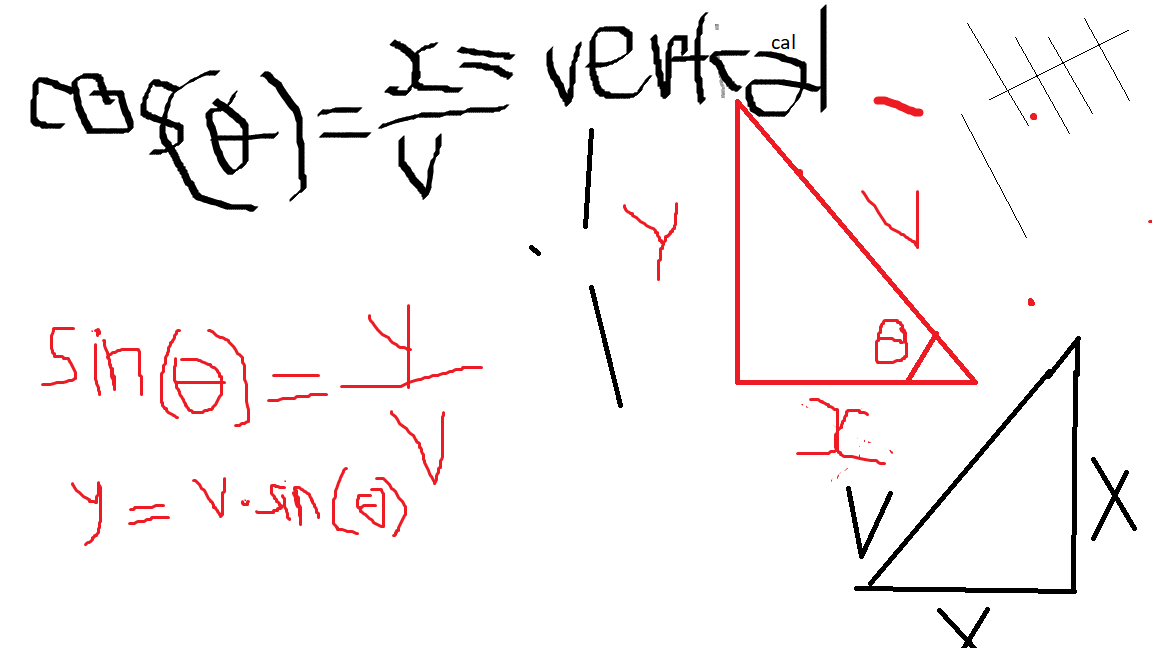 cos(θ) = x/v = vertical
cal
Y
V
θ
x
sin(θ) = y/v
y = v·sin(θ)
V
X
X